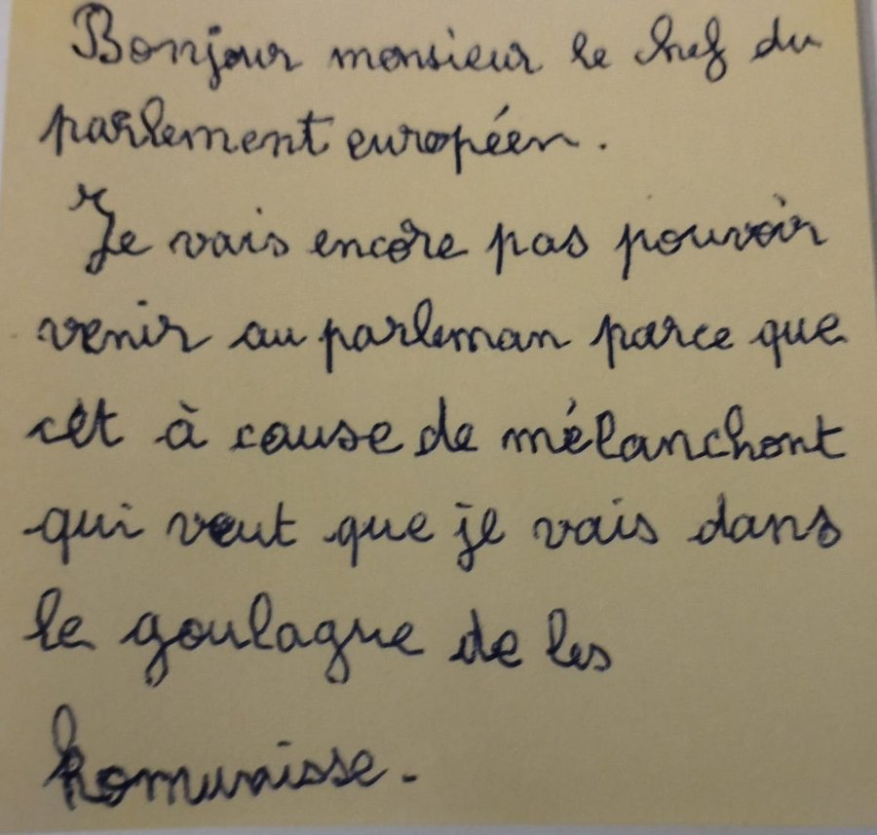 Bonjour monsieur le chef du
parlement européen.
Je vais encore pas pouvoir
venir au parleman parce que
cèt à cause de mélanchont
qui veut que je vais dans
le goulague de les
komunisse.